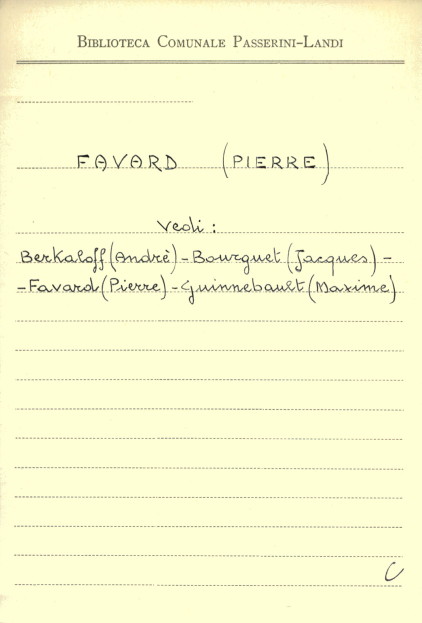 BIBLIOTECA COMUNALE PASSERINI-LANDI
FAVARD (PIERRE)
Vedi:
Berkaloff (Andrè) - Bourguet (Jacques) -
- Favard (Pierre) - Guinnebault (Maxime)
C